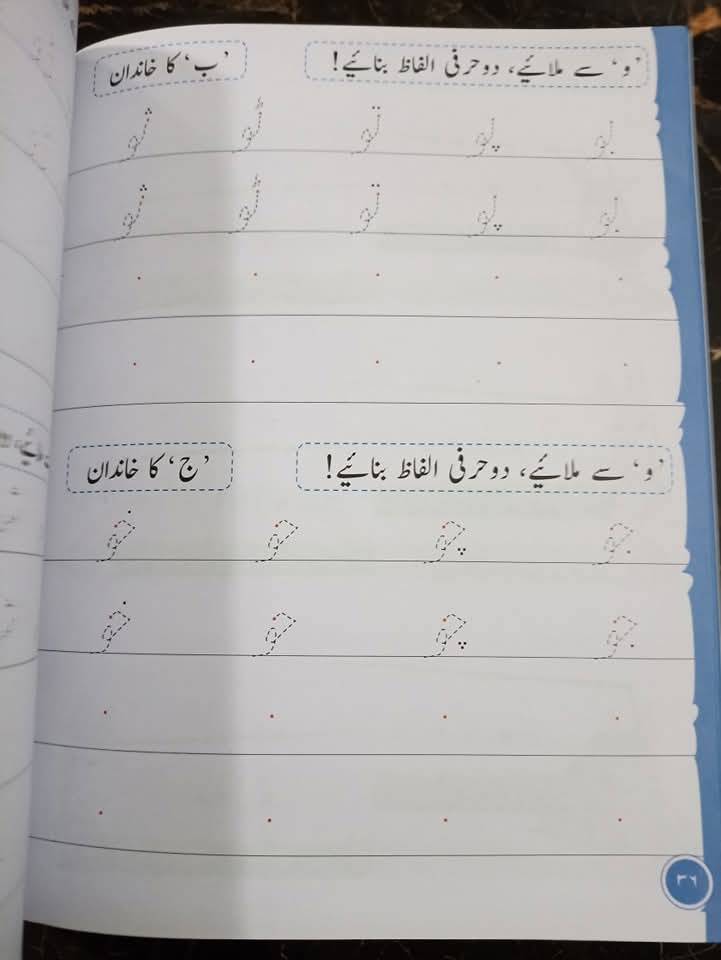 ’و‘ سے ملائیے، دو حرفی الفاظ بنائیے! ’ب‘ کا خاندان
بو پو تو ٹو ثو
بو پو تو ٹو ثو
’و‘ سے ملائیے، دو حرفی الفاظ بنائیے! ’ج‘ کا خاندان
جو چو حو خو
جو چو حو خو
۳۶